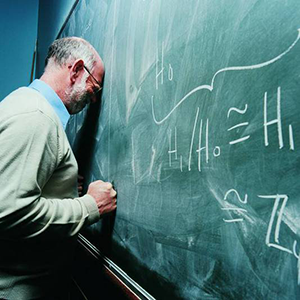 H₀
H₁/H₀ ≅ H₁
≅ ℤ